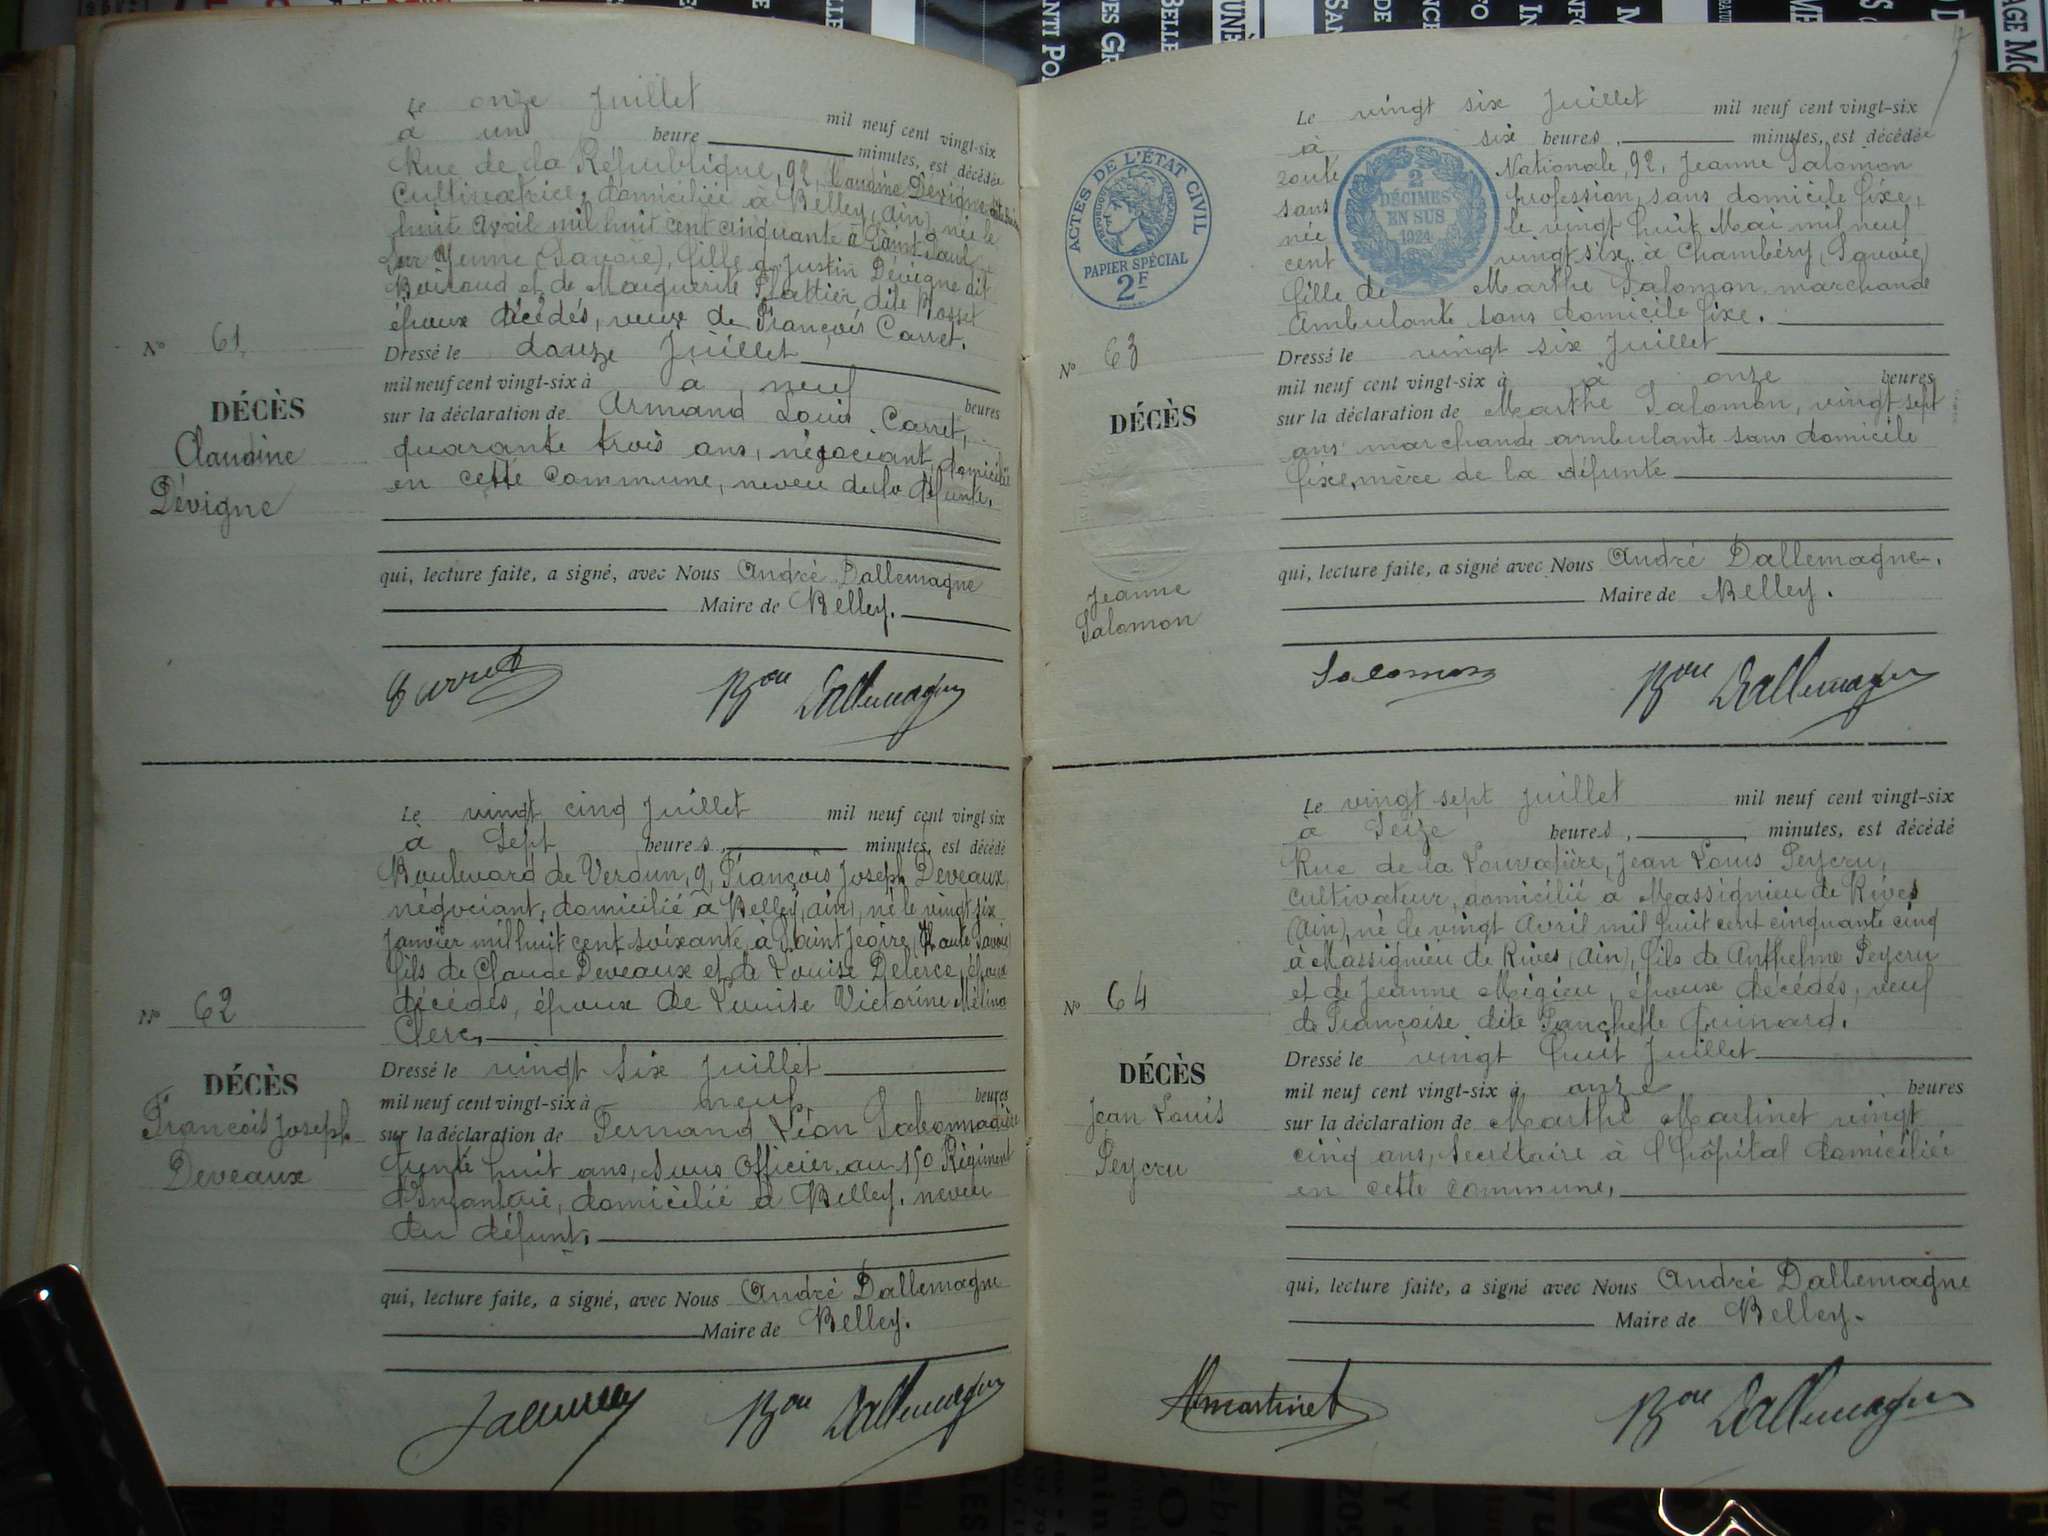 Le onze Juillet mil neuf cent vingt-six
à un heure minutes, est décédée
Rue de la République, 92, Claudine Dévigne
Cultivatrice, domiciliée à Belley, (Ain), née le
huit Avril mil huit cent cinquante à Saint Paul
sur Yenne (Savoie), fille de Justin Dévigne dit
Boiraud et de Marguerite Plattier, dite Rosset
époux décédés, veuve de François Carret.
Dressé le douze Juillet
mil neuf cent vingt-six à a neuf heures
sur la déclaration de Armand Louis Carret,
quarante trois ans, négociant, domicilié
en cette commune, neveu de la défunte.
qui, lecture faite, a signé, avec Nous André Dallemagne
Maire de Belley.
No 61
DÉCÈS
Claudine
Dévigne
Carret
Bon Dallemagne
Le vingt cinq Juillet mil neuf cent vingt six
à Sept heures, minutes, est décédé
Boulevard de Verdun, 9, François Joseph Deveaux,
négociant, domicilié à Belley, (Ain), né le vingt six
Janvier mil huit cent soixante, à Saint Jeoire (Haute Savoie)
fils de Claude Deveaux et de Louise Delerce, époux
décédés, époux de Louise Victorine Mélina
Clerc,
Dressé le vingt six Juillet
mil neuf cent vingt-six à neuf, heures
sur la déclaration de Fernand Léon
trente huit ans, Sous Officier au 150 Régiment
d'Infanterie, domicilié à Belley, neveu
du défunt.
qui, lecture faite, a signé, avec Nous André Dallemagne
Maire de Belley.
No 62
DÉCÈS
François Joseph
Deveaux
Bon Dallemagne
Le vingt six Juillet mil neuf cent vingt-six
à six heures, minutes, est décédée
route Nationale, 92, Jeanne Salomon
sans profession, sans domicile fixe,
née le vingt huit Mai mil neuf
cent vingt six à Chambéry (Savoie)
fille de Marthe Salomon, marchande
ambulante sans domicile fixe.
Dressé le vingt six Juillet
mil neuf cent vingt-six à à onze heures
sur la déclaration de Marthe Salomon, vingt sept
ans marchande ambulante sans domicile
fixe, mère de la défunte
qui, lecture faite, a signé avec Nous André Dallemagne.
Maire de Belley.
ACTES DE L'ÉTAT CIVIL
PAPIER SPÉCIAL
2F
2
DÉCIMES
EN SUS
1924
No 63
DÉCÈS
Jeanne
Salomon
Salomon
Bon Dallemagne
Le vingt sept Juillet mil neuf cent vingt-six
à Seize heures, minutes, est décédé
Rue de la Louvatière, Jean Louis Peycru,
cultivateur, domicilié à Massignieu de Rives
(Ain), né le vingt Avril mil huit cent cinquante cinq
à Massignieu de Rives (Ain), fils de Anthelme Peycru
et de Jeanne Migieu, époux décédés, veuf
de Françoise dite Fanchette Guinard.
Dressé le vingt huit Juillet
mil neuf cent vingt-six à onze heures
sur la déclaration de Marthe Martinet vingt
cinq ans, Secrétaire à l'hôpital domiciliée
en cette commune,
qui, lecture faite, a signé avec Nous André Dallemagne
Maire de Belley.
No 64
DÉCÈS
Jean Louis
Peycru
Martinet
Bon Dallemagne